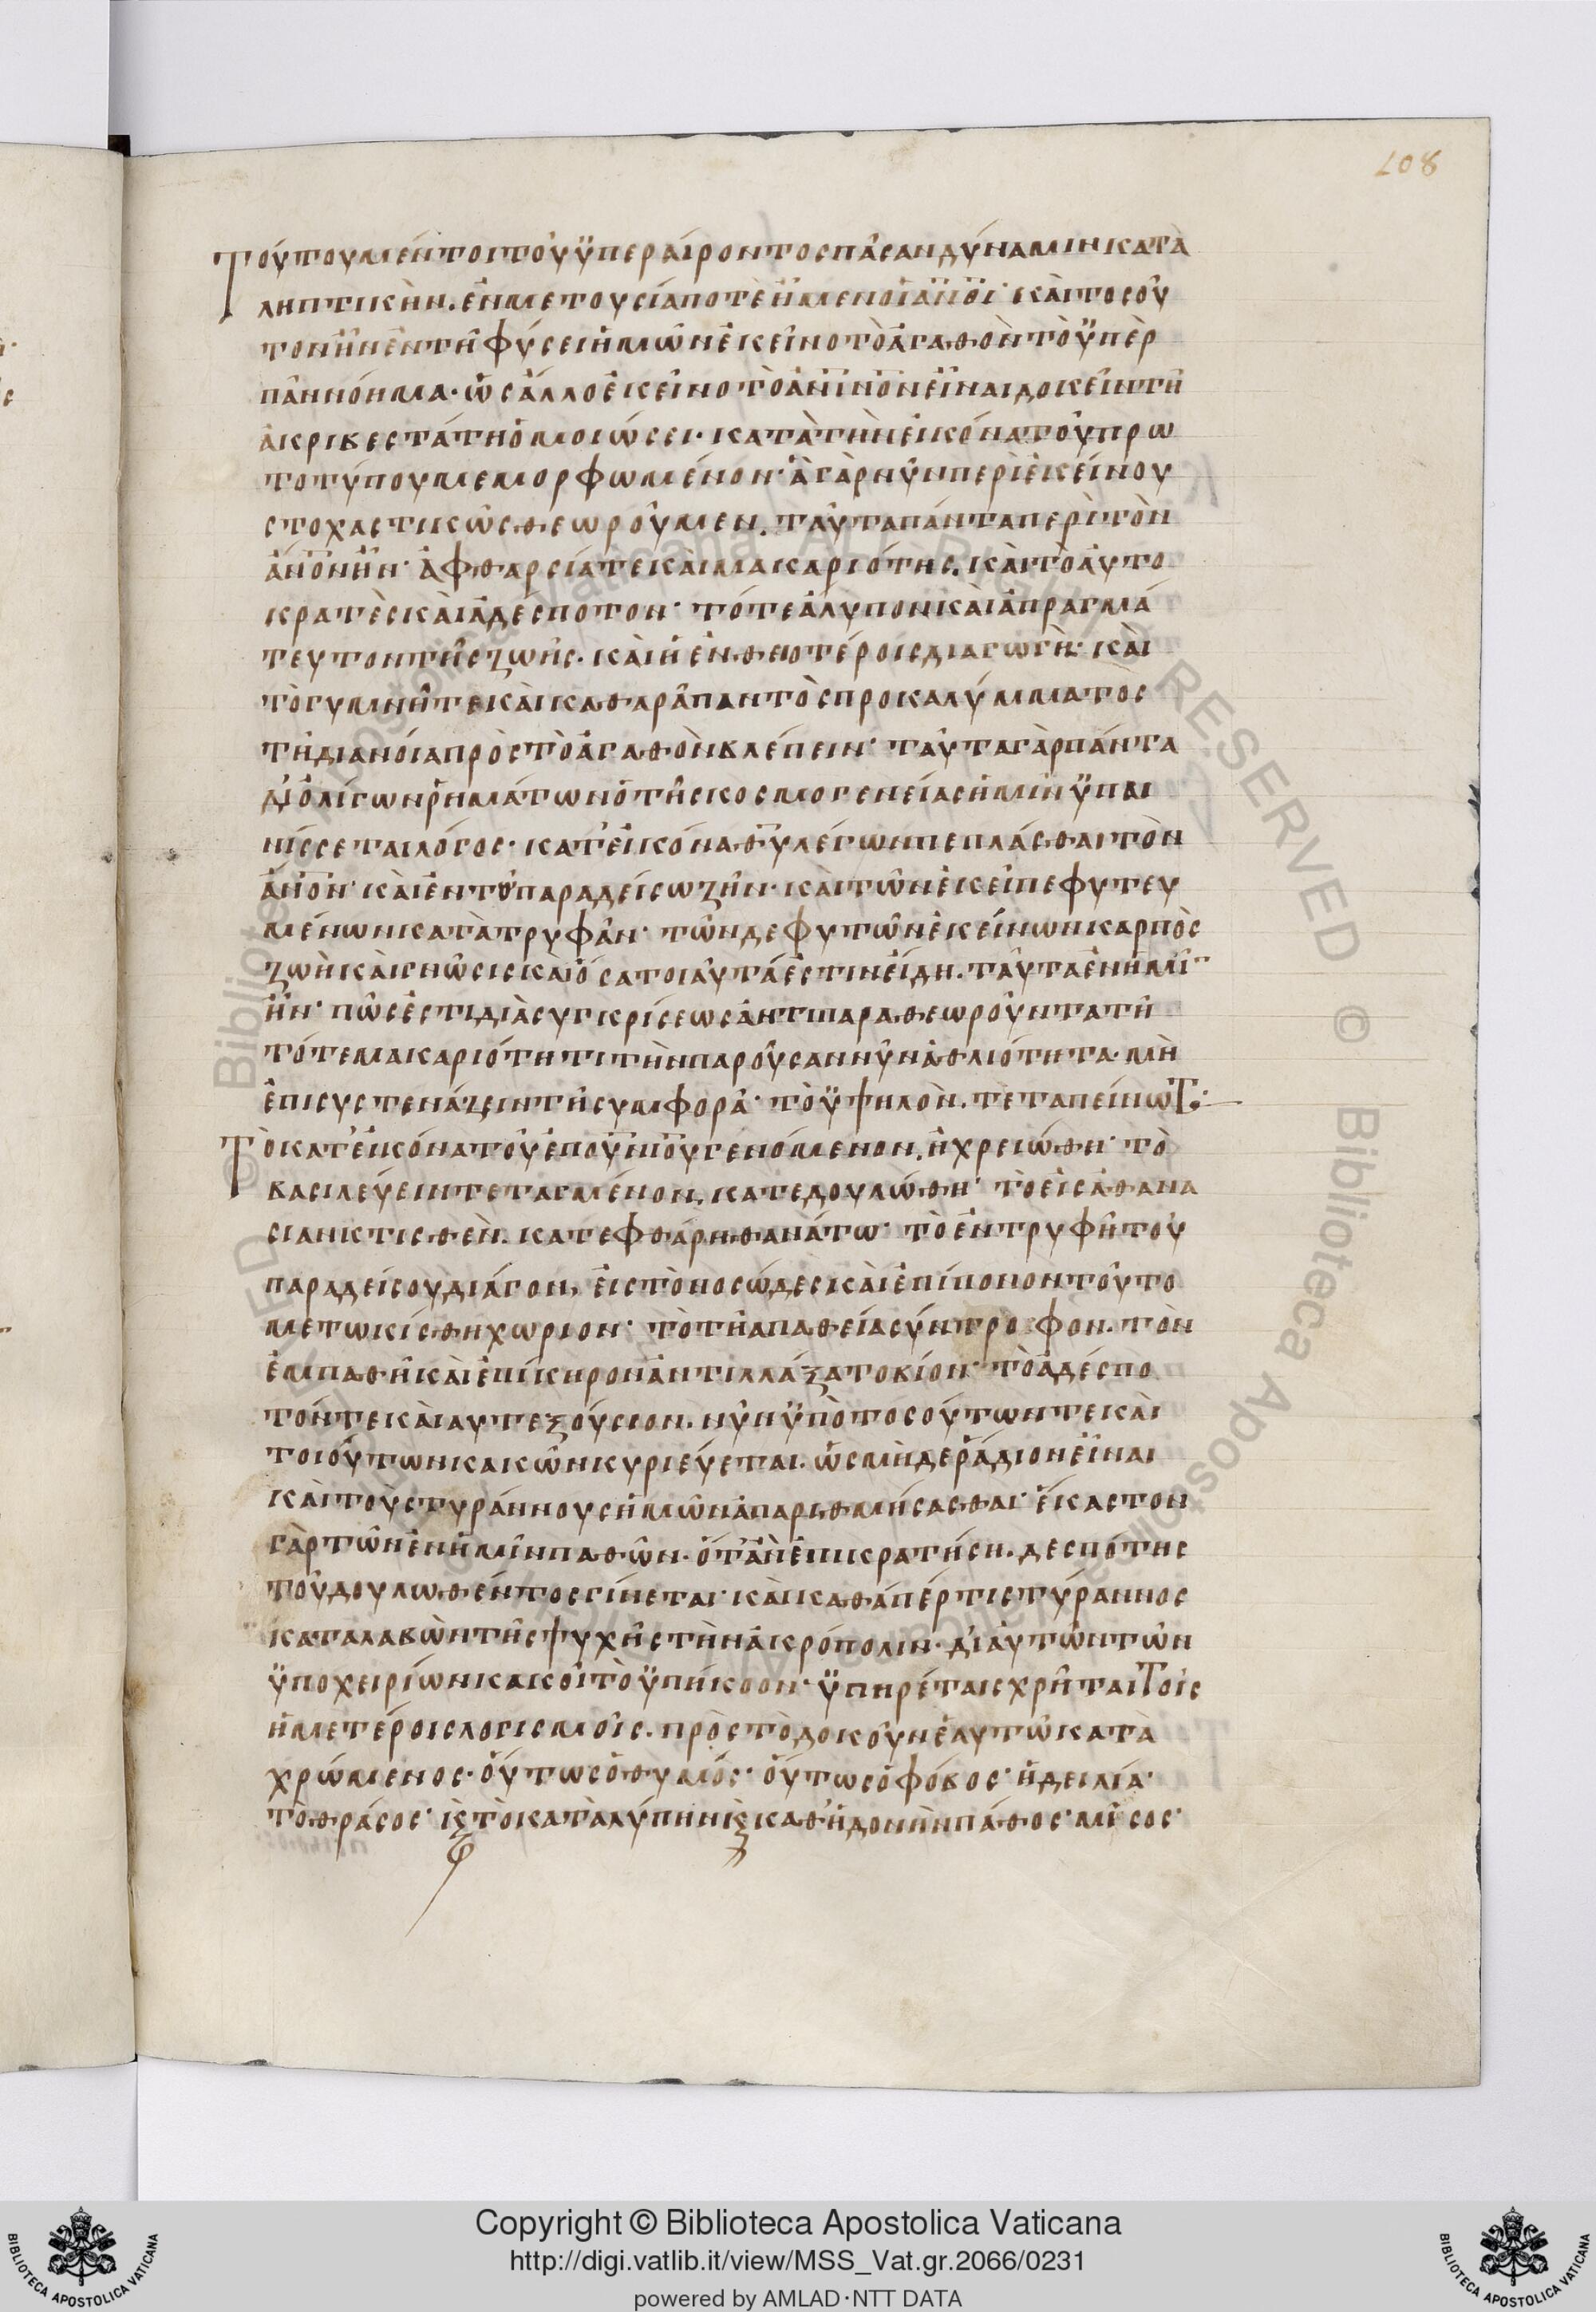 108
Τούτου μέντοι τοῦ ὑπεραίροντος πᾶσαν δύναμιν κατα
ληπτικὴν. ἐν μετουσία ποτὲ ἦμεν οἱ ἄνοι· καὶ τοσοῦ
τον ἦν ἐν τῆ φύσει ἡμῶν ἐκεῖνο τὸ ἀγαθὸν τὸ ὑπὲρ
πᾶν νόημα· ὡς ἄλλο ἐκεῖνο τὸ ἀνινον εἶναι δοκεῖν τῆ
ἀκριβεστάτη ὁμοιώσει· κατὰ τὴν εἰκόνα τοῦ πρω
τοτύπου μεμορφωμένον· ἃ γὰρ νῦν περὶ ἐκείνου
στοχαστικῶς θεωροῦμεν. ταῦτα πάντα περὶ τὸν
ἄνον ἦν· ἀφθαρσία τε καὶ μακαριότης. καὶ τὸ αὐτο
κρατὲς καὶ ἀδέσποτον· τό τε ἄλυπον καὶ ἀπραγμά
τευτον τῆς ζωῆς. καὶ ἡ ἐν θειοτέροις διαγωγὴ· καὶ
τὸ γυμνῆ τε καὶ καθαρᾶ παντὸς προκαλύμματος
τῆ διανοία πρὸς τὸ ἀγαθὸν βλέπειν· ταῦτα γὰρ πάντα
δι ὀλίγων ῥημάτων ὁ τῆς κοσμογενείας ἡμῖν ὑπαι
νίσσεται λόγος· κατ εἰκόνα θυ λέγων πεπλάσθαι τὸν
ἄνον· καὶ ἐν τῶ παραδείσω ζῆν· καὶ τῶν ἐκεῖ πεφυτευ
μένων κατατρυφᾶν· τῶν δε φυτῶν ἐκείνων καρπὸς
ζωὴ καὶ γνῶσις καὶ ὅσα τοιαῦτά ἐστιν εἴδη. ταῦτα ἐν ἡμῖ
ἦν· πῶς ἐστι διὰ συγκρίσεως ἀντιπαραθεωροῦντα τῆ
τότε μακαριότητι τὴν παροῦσαν νῦν ἀθλιότητα. μὴ
ἐπισυστενάζειν τῆ συμφορᾶ· τὸ ὑψηλὸν. τεταπείνωται·
Τὸ κατ εἰκόνα τοῦ ἐπουνίου γενόμενον. ἠχρειώθη· τὸ
βασιλεύειν τεταγμένον. κατεδουλώθη· τὸ εἰς ἀθανα
σίαν κτισθὲν. κατεφθάρη θανάτω· τὸ ἐν τρυφῆ τοῦ
παραδείσου διάγον, εἰς τὸ νοσῶδες καὶ ἐπίπονον τοῦτο
μετωκίσθη χωρίον· τὸ τῆ ἀπαθεία σύντροφον. τὸν
ἐμπαθῆ καὶ ἐπίκηρον ἀντιλλάξατο βίον· τὸ ἀδέσπο
τόν τε καὶ αὐτεξούσιον. νῦν ὑπὸ τοσούτων τε καὶ
τοιούτων κακῶν κυριεύεται. ὡς μὴδε ῥάδιον εἶναι
καὶ τοὺς τυράννους ἡμῶν ἀπαριθμήσασθαι· ἕκαστον
γὰρ τῶν ἐν ἡμῖν παθῶν. ὅτ ἂν ἐπικρατήση. δεσπότης
τοῦ δουλωθέντος γίνεται· καὶ καθάπέρ τις τύραννος
καταλαβὼν τῆς ψυχῆς τὴν ἀκρόπολιν· δι αὐτῶν τῶν
ὑποχειρίων κακοῖ τὸ ὑπήκοον· ὑπηρέταις χρῆται Τοῖς
ἡμετέροις λογισμοῖς. πρὸς τὸ δοκοῦν ἑαυτῶ κατα
χρώμενος. οὕτως ὁ θυμός· οὕτως ὁ φόβος· ἡ δειλία·
τὸ θράσος· κ τὸ κατὰ λύπην κ καθ ἡδονὴν πάθος· μῖσος·
Copyright © Biblioteca Apostolica Vaticana
http://digi.vatlib.it/view/MSS_Vat.gr.2066/0231
powered by AMLAD·NTT DATA
BIBLIOTECA APOSTOLICA VATICANA
BIBLIOTECA APOSTOLICA VATICANA